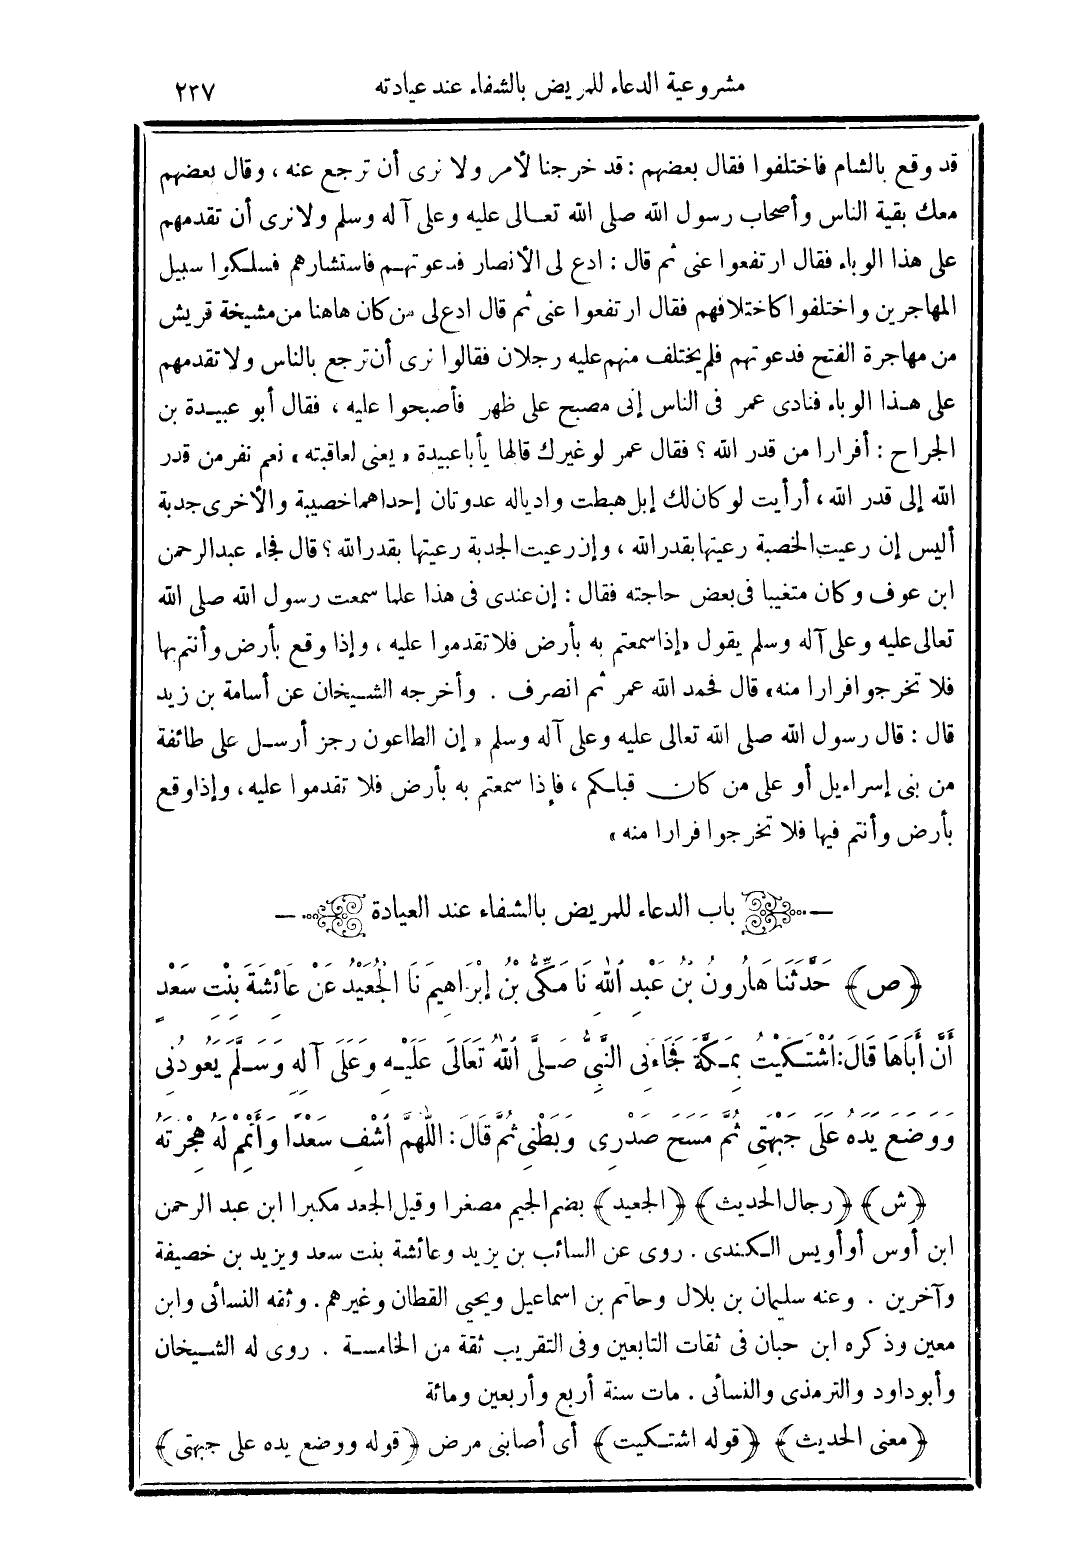 مشروعية الدعاء للمريض بالشفاء عند عيادته ٢٣٧
قد وقع بالشام فاختلفوا فقال بعضهم : قد خرجنا لأمر ولا نرى أن ترجع عنه ، وقال بعضهم
معك بقية الناس وأصحاب رسول الله صلى الله تعالى عليه وعلى آله وسلم ولا نرى أن تقدمهم
على هذا الوباء فقال ارتفعوا عنى ثم قال : ادع لى الأنصار فدعوتهم فاستشارهم فسلكوا سبيل
المهاجرين واختلفوا كاختلافهم فقال ارتفعوا عنى ثم قال ادع لى من كان هاهنا من مشيخة قريش
من مهاجرة الفتح فدعوتهم فلم يختلف منهم عليه رجلان فقالوا نرى أن ترجع بالناس ولا تقدمهم
على هذا الوباء فنادى عمر فى الناس إنى مصبح على ظهر فأصبحوا عليه ، فقال أبو عبيدة بن
الجراح : أفرارا من قدر الله ؟ فقال عمر لو غيرك قالها يأبا عبيدة «يعنى لعاقبته» نعم نفر من قدر
الله إلى قدر الله ، أرأيت لو كان لك إبل هبطت واديا له عدوتان إحداهما خصيبة والأخرى جدبة
أليس إن رعيت الخصبة رعيتها بقدر الله ، وإن رعيت الجدبة رعيتها بقدر الله ؟ قال فجاء عبد الرحمن
ابن عوف وكان متغيبا فى بعض حاجته فقال : إن عندى فى هذا علما سمعت رسول الله صلى الله
تعالى عليه وعلى آله وسلم يقول «إذا سمعتم به بأرض فلا تقدموا عليه ، وإذا وقع بأرض وأنتم بها
فلا تخرجوا فرارا منه» قال فحمد الله عمر ثم انصرف . وأخرجه الشيخان عن أسامة بن زيد
قال : قال رسول الله صلى الله تعالى عليه وعلى آله وسلم « إن الطاعون رجز أرسل على طائفة
من بنى إسراءيل أو على من كان قبلكم ، فإذا سمعتم به بأرض فلا تقدموا عليه، وإذا وقع
بأرض وأنتم فيها فلا تخرجوا فرارا منه »
باب الدعاء للمريض بالشفاء عند العيادة
﴿ص﴾ حَدَّثَنَا هَارُونُ بْنُ عَبْدِ اللهِ نَا مَكِّيُّ بْنُ إِبْرَاهِيمَ نَا الْجُعَيْدُ عَنْ عَائِشَةَ بِنْتِ سَعْدٍ
أَنَّ أَبَاهَا قَالَ: اشْتَكَيْتُ بِمَكَّةَ فَجَاءَنِى النَّبِيُّ صَلَّى اللهُ تَعَالَى عَلَيْهِ وَعَلَى آلِهِ وَسَلَّمَ يَعُودُنِى
وَوَضَعَ يَدَهُ عَلَى جَبْهَتِى ثُمَّ مَسَحَ صَدْرِى وَبَطْنِى ثُمَّ قَالَ: اللَّهُمَّ اشْفِ سَعْدًا وَأَتْمِمْ لَهُ هِجْرَتَهُ
﴿ش﴾ ﴿رجال الحديث﴾ ﴿الجعيد﴾ بضم الجيم مصغرا وقيل الجعد مكبرا ابن عبد الرحمن
ابن أوس أو أويس الكندى . روى عن السائب بن يزيد وعائشة بنت سعد ويزيد بن خصيفة
وآخرين . وعنه سليمان بن بلال وحاتم بن اسماعيل ويحيى القطان وغيرهم . وثقه النسائى وابن
معين وذكره ابن حبان فى ثقات التابعين وفى التقريب ثقة من الخامسة . روى له الشيخان
وأبوداود والترمذى والنسائى . مات سنة أربع وأربعين ومائة
﴿معنى الحديث﴾ ﴿قوله اشتكيت﴾ أى أصابنى مرض ﴿قوله ووضع يده على جبهتى﴾